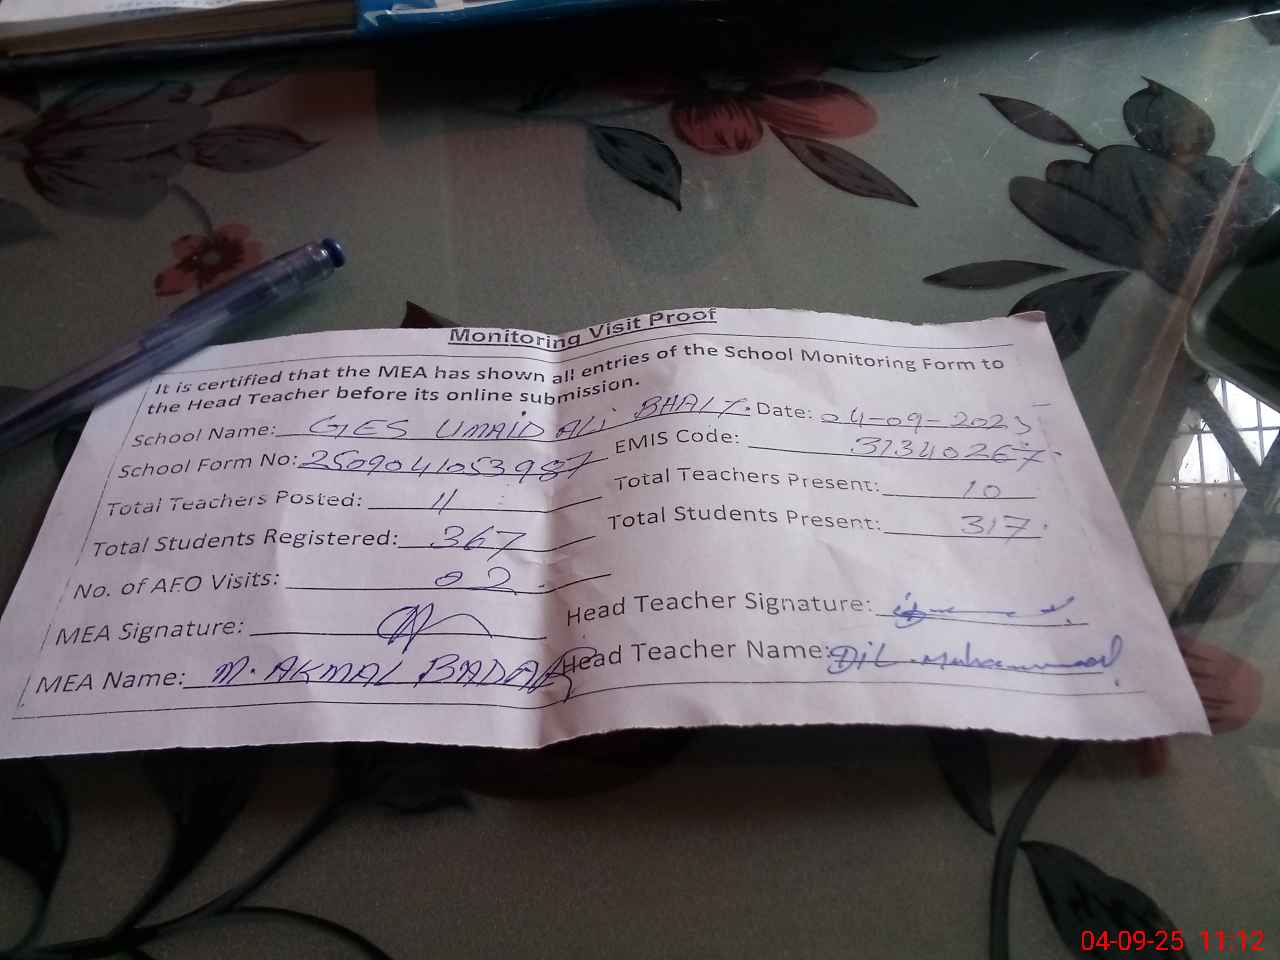 Monitoring Visit Proof
It is certified that the MEA has shown all entries of the School Monitoring Form to
the Head Teacher before its online submission.
School Name: GES UMAID ALI BHALI. Date: 04-09-2025
School Form No: 2509041053987 EMIS Code: 31340267.
Total Teachers Posted: 11 Total Teachers Present: 10
Total Students Registered: 367 Total Students Present: 317.
No. of AFO Visits: 02.
MEA Signature: Head Teacher Signature:
MEA Name: M. AKMAL BADAR Head Teacher Name: Dil Muhammad
04-09-25 11:12